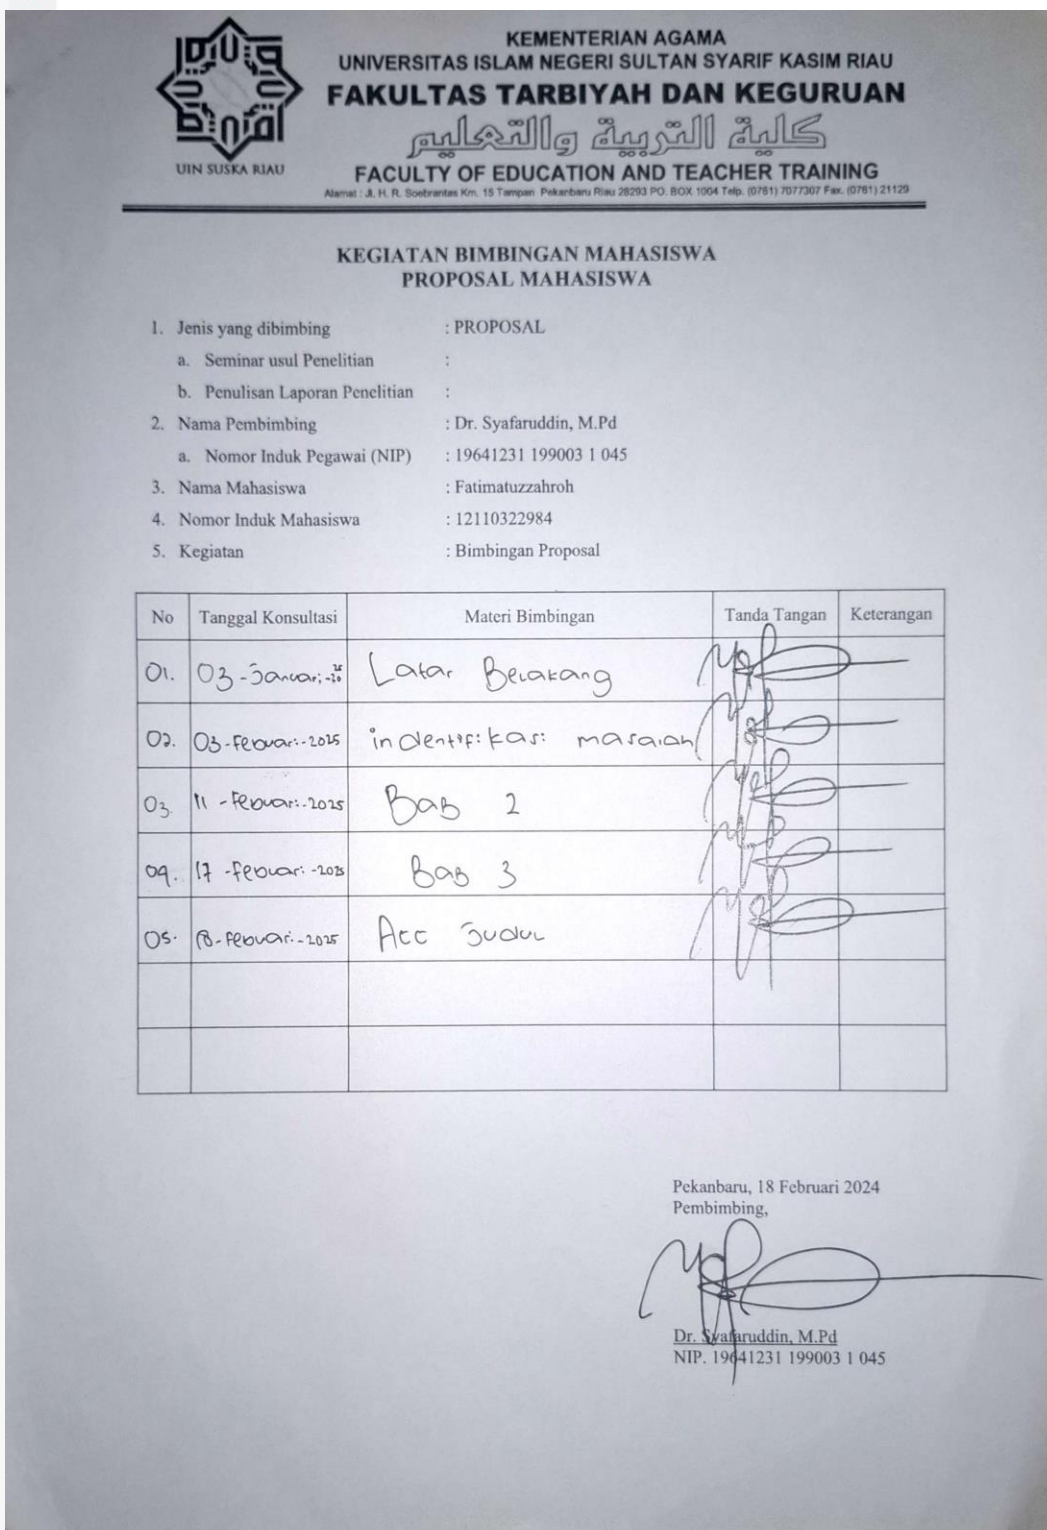 KEMENTERIAN AGAMA
UNIVERSITAS ISLAM NEGERI SULTAN SYARIF KASIM RIAU
FAKULTAS TARBIYAH DAN KEGURUAN
كلية التربية والتعليم
FACULTY OF EDUCATION AND TEACHER TRAINING
Alamat : Jl. H. R. Soebrantas Km. 15 Tampan Pekanbaru Riau 28293 PO. BOX 1004 Telp. (0761) 7077307 Fax. (0761) 21129
UIN SUSKA RIAU
KEGIATAN BIMBINGAN MAHASISWA
PROPOSAL MAHASISWA
1. Jenis yang dibimbing : PROPOSAL
a. Seminar usul Penelitian :
b. Penulisan Laporan Penelitian :
2. Nama Pembimbing : Dr. Syafaruddin, M.Pd
a. Nomor Induk Pegawai (NIP) : 19641231 199003 1 045
3. Nama Mahasiswa : Fatimatuzzahroh
4. Nomor Induk Mahasiswa : 12110322984
5. Kegiatan : Bimbingan Proposal
No Tanggal Konsultasi Materi Bimbingan Tanda Tangan Keterangan
01. 03-Januari- Latar Belakang
02. 03-Febuari-2025 indentifikasi masalah
03. 11-Febuari-2025 Bab 2
04. 17-Febuari-2025 Bab 3
05. 18-Febuari-2025 Acc Judul
Pekanbaru, 18 Februari 2024
Pembimbing,
Dr. Syafaruddin, M.Pd
NIP. 19641231 199003 1 045